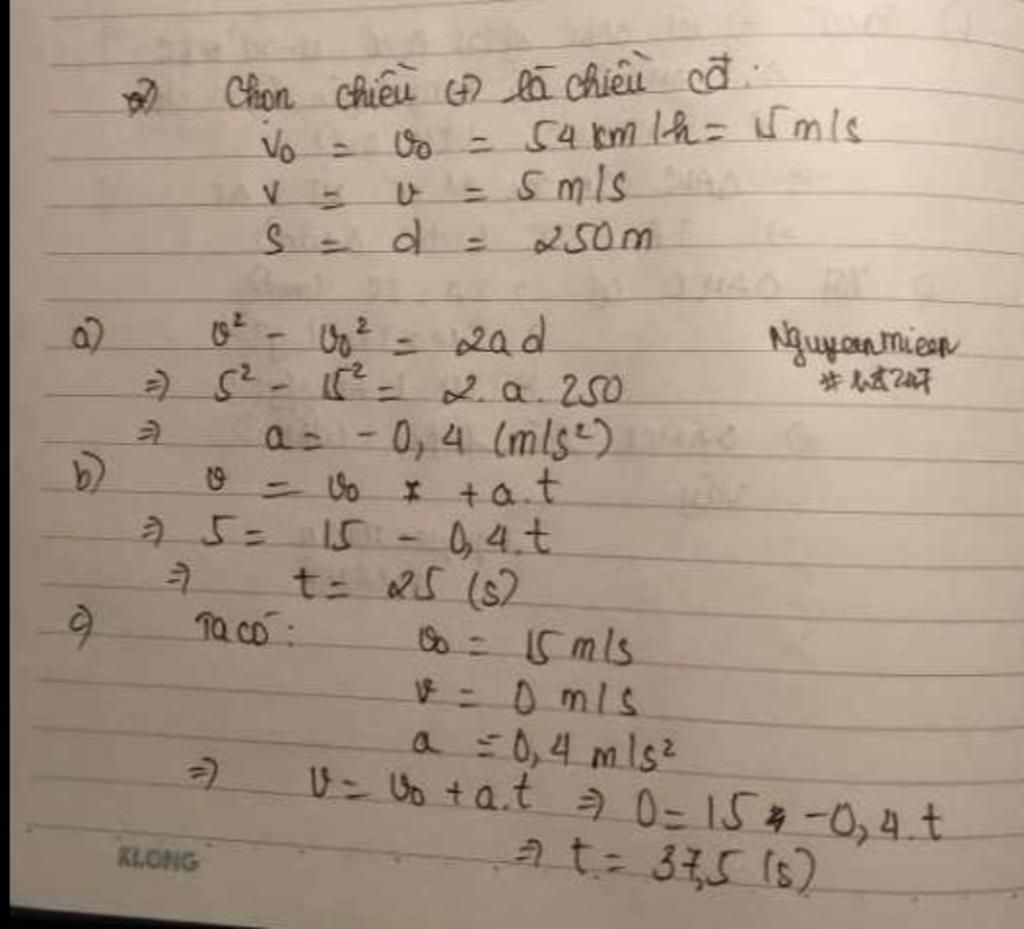 Chọn chiều (+) là chiều cđ:
v₀ = v₀ = 54 km/h = 15 m/s
v = v = 5 m/s
s = d = 250m
a) v² - v₀² = 2ad
Nguyenmieen
⇒ 5² - 15² = 2.a.250
⇒ a = -0,4 (m/s²)
b) v = v₀ + a.t
⇒ 5 = 15 - 0,4.t
⇒ t = 25 (s)
c) Ta có: v₀ = 15 m/s
v = 0 m/s
a = 0,4 m/s²
⇒ v = v₀ + a.t ⇒ 0 = 15 -0,4.t
⇒ t = 37,5 (s)
KLONG